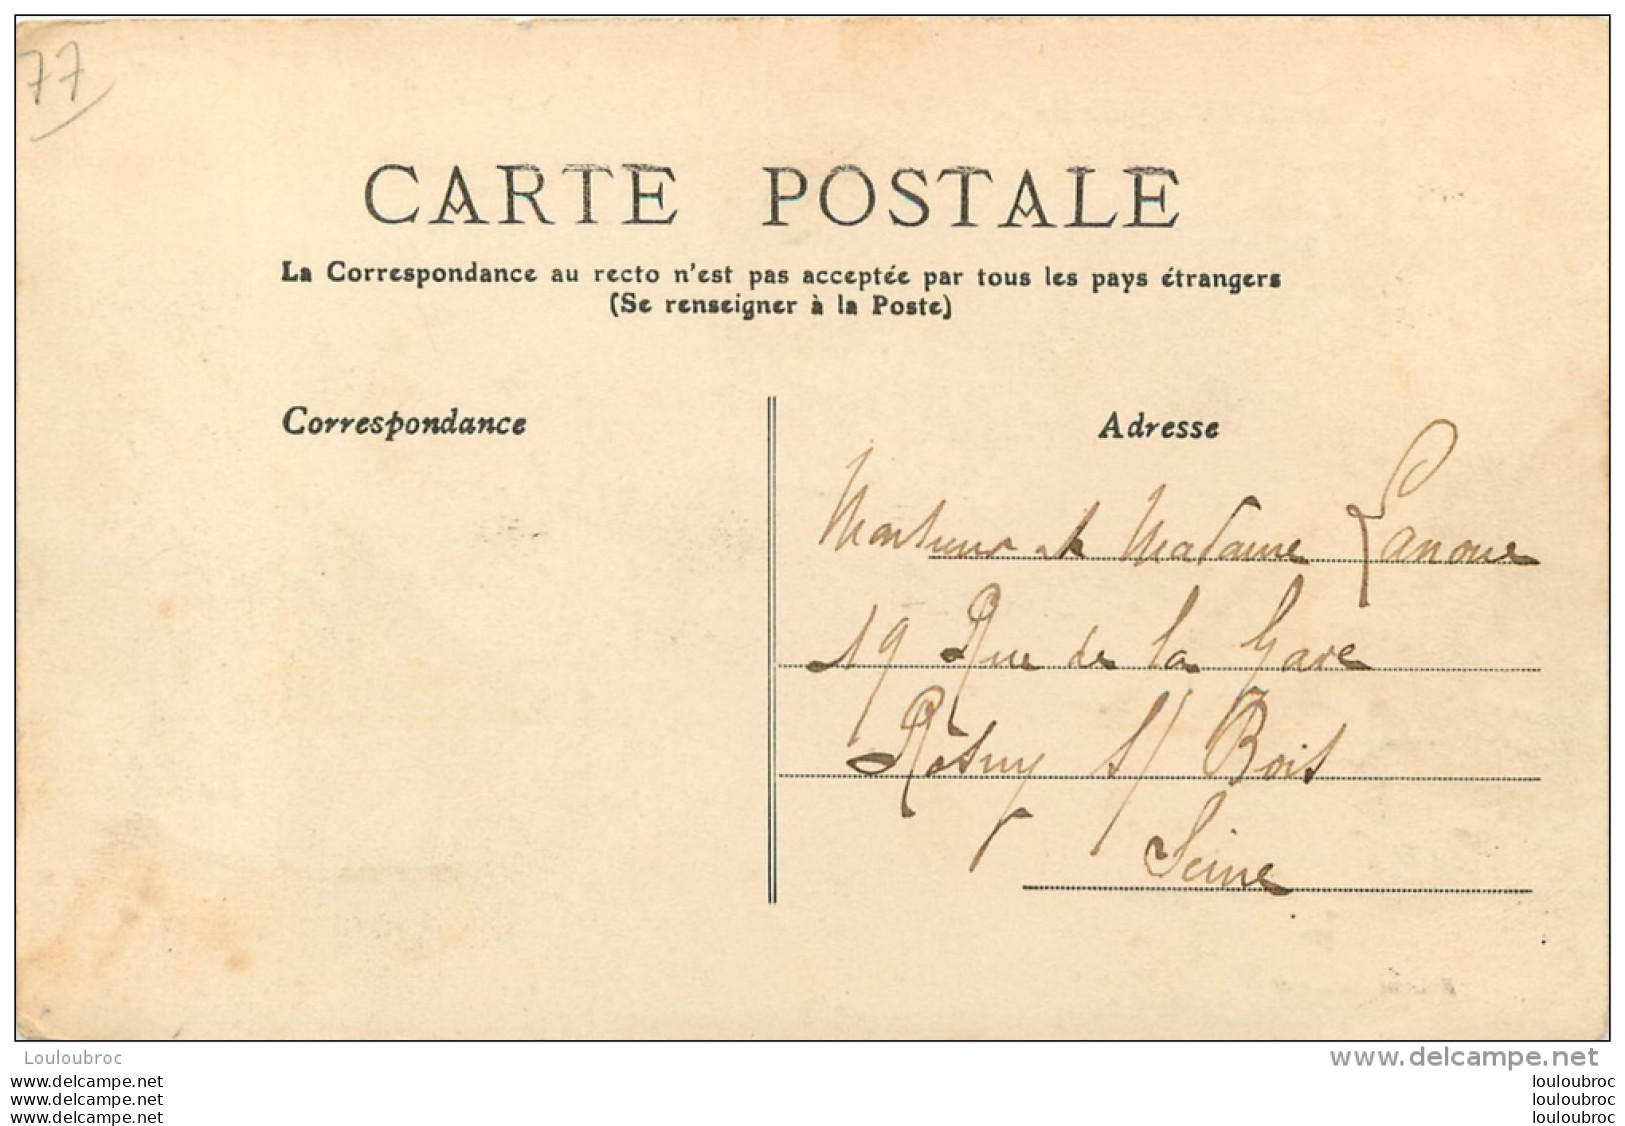 77
CARTE POSTALE
La Correspondance au recto n'est pas acceptée par tous les pays étrangers
(Se renseigner à la Poste)
Correspondance
Adresse
Monsieur et Madame Lanoue
19 Rue de la Gare
Rosny s/ Bois
Seine
Louloubroc
www.delcampe.net
www.delcampe.net louloubroc
www.delcampe.net louloubroc
www.delcampe.net louloubroc